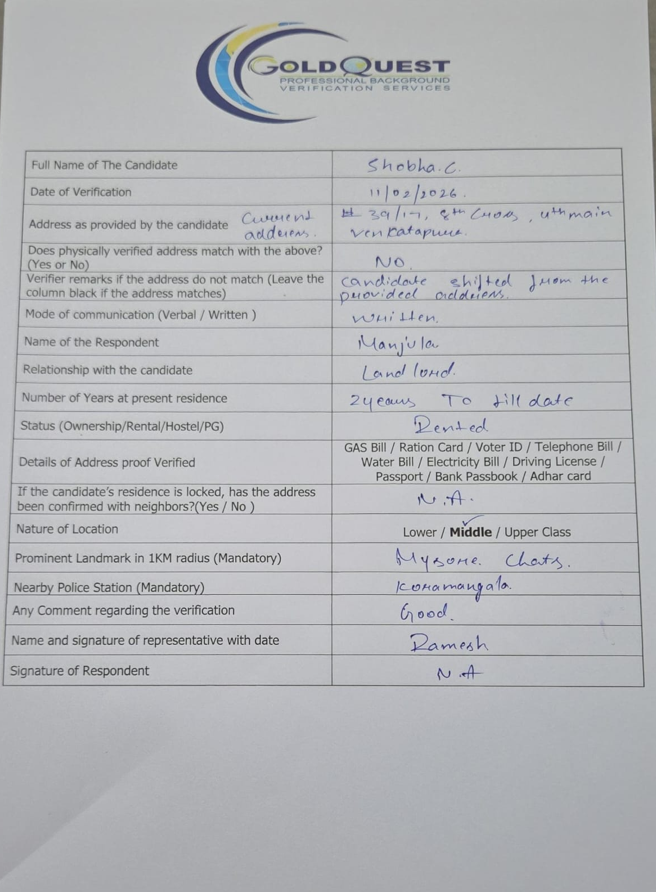 GOLDQUEST
PROFESSIONAL BACKGROUND
VERIFICATION SERVICES
Full Name of The Candidate Shobha.C.
Date of Verification 11/02/2026.
Address as provided by the candidate Current address. # 39/17, 8th Cross, 4th main Venkatapura.
Does physically verified address match with the above? (Yes or No) NO.
Verifier remarks if the address do not match (Leave the column black if the address matches) candidate shifted from the provided address.
Mode of communication (Verbal / Written ) Written.
Name of the Respondent Manjula
Relationship with the candidate Land lord.
Number of Years at present residence 2years To till date
Status (Ownership/Rental/Hostel/PG) Rented
Details of Address proof Verified GAS Bill / Ration Card / Voter ID / Telephone Bill /
Water Bill / Electricity Bill / Driving License /
Passport / Bank Passbook / Adhar card
If the candidate's residence is locked, has the address been confirmed with neighbors?(Yes / No ) N.A.
Nature of Location Lower / Middle / Upper Class
Prominent Landmark in 1KM radius (Mandatory) Mysore Chats.
Nearby Police Station (Mandatory) Koramangala.
Any Comment regarding the verification Good.
Name and signature of representative with date Ramesh
Signature of Respondent N.A